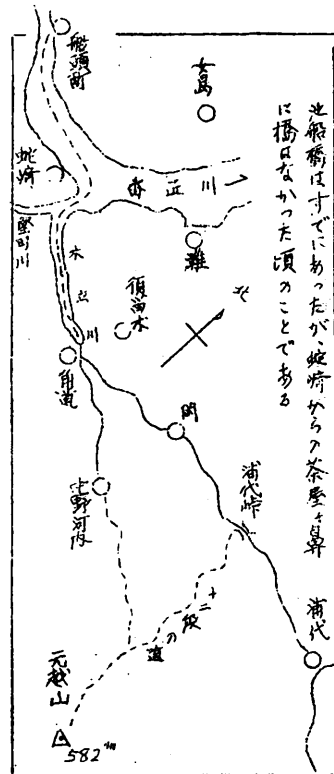 池船橋はすでにあったが、蛇崎からの茶屋ヶ鼻
に橋はなかった頃のことである
船頭町
女島
蛇崎
番匠川
堅田川
灘
木立川
須留木
北
角道
上野河内
浦代峠
浦代
十二段の道
元越山
582m